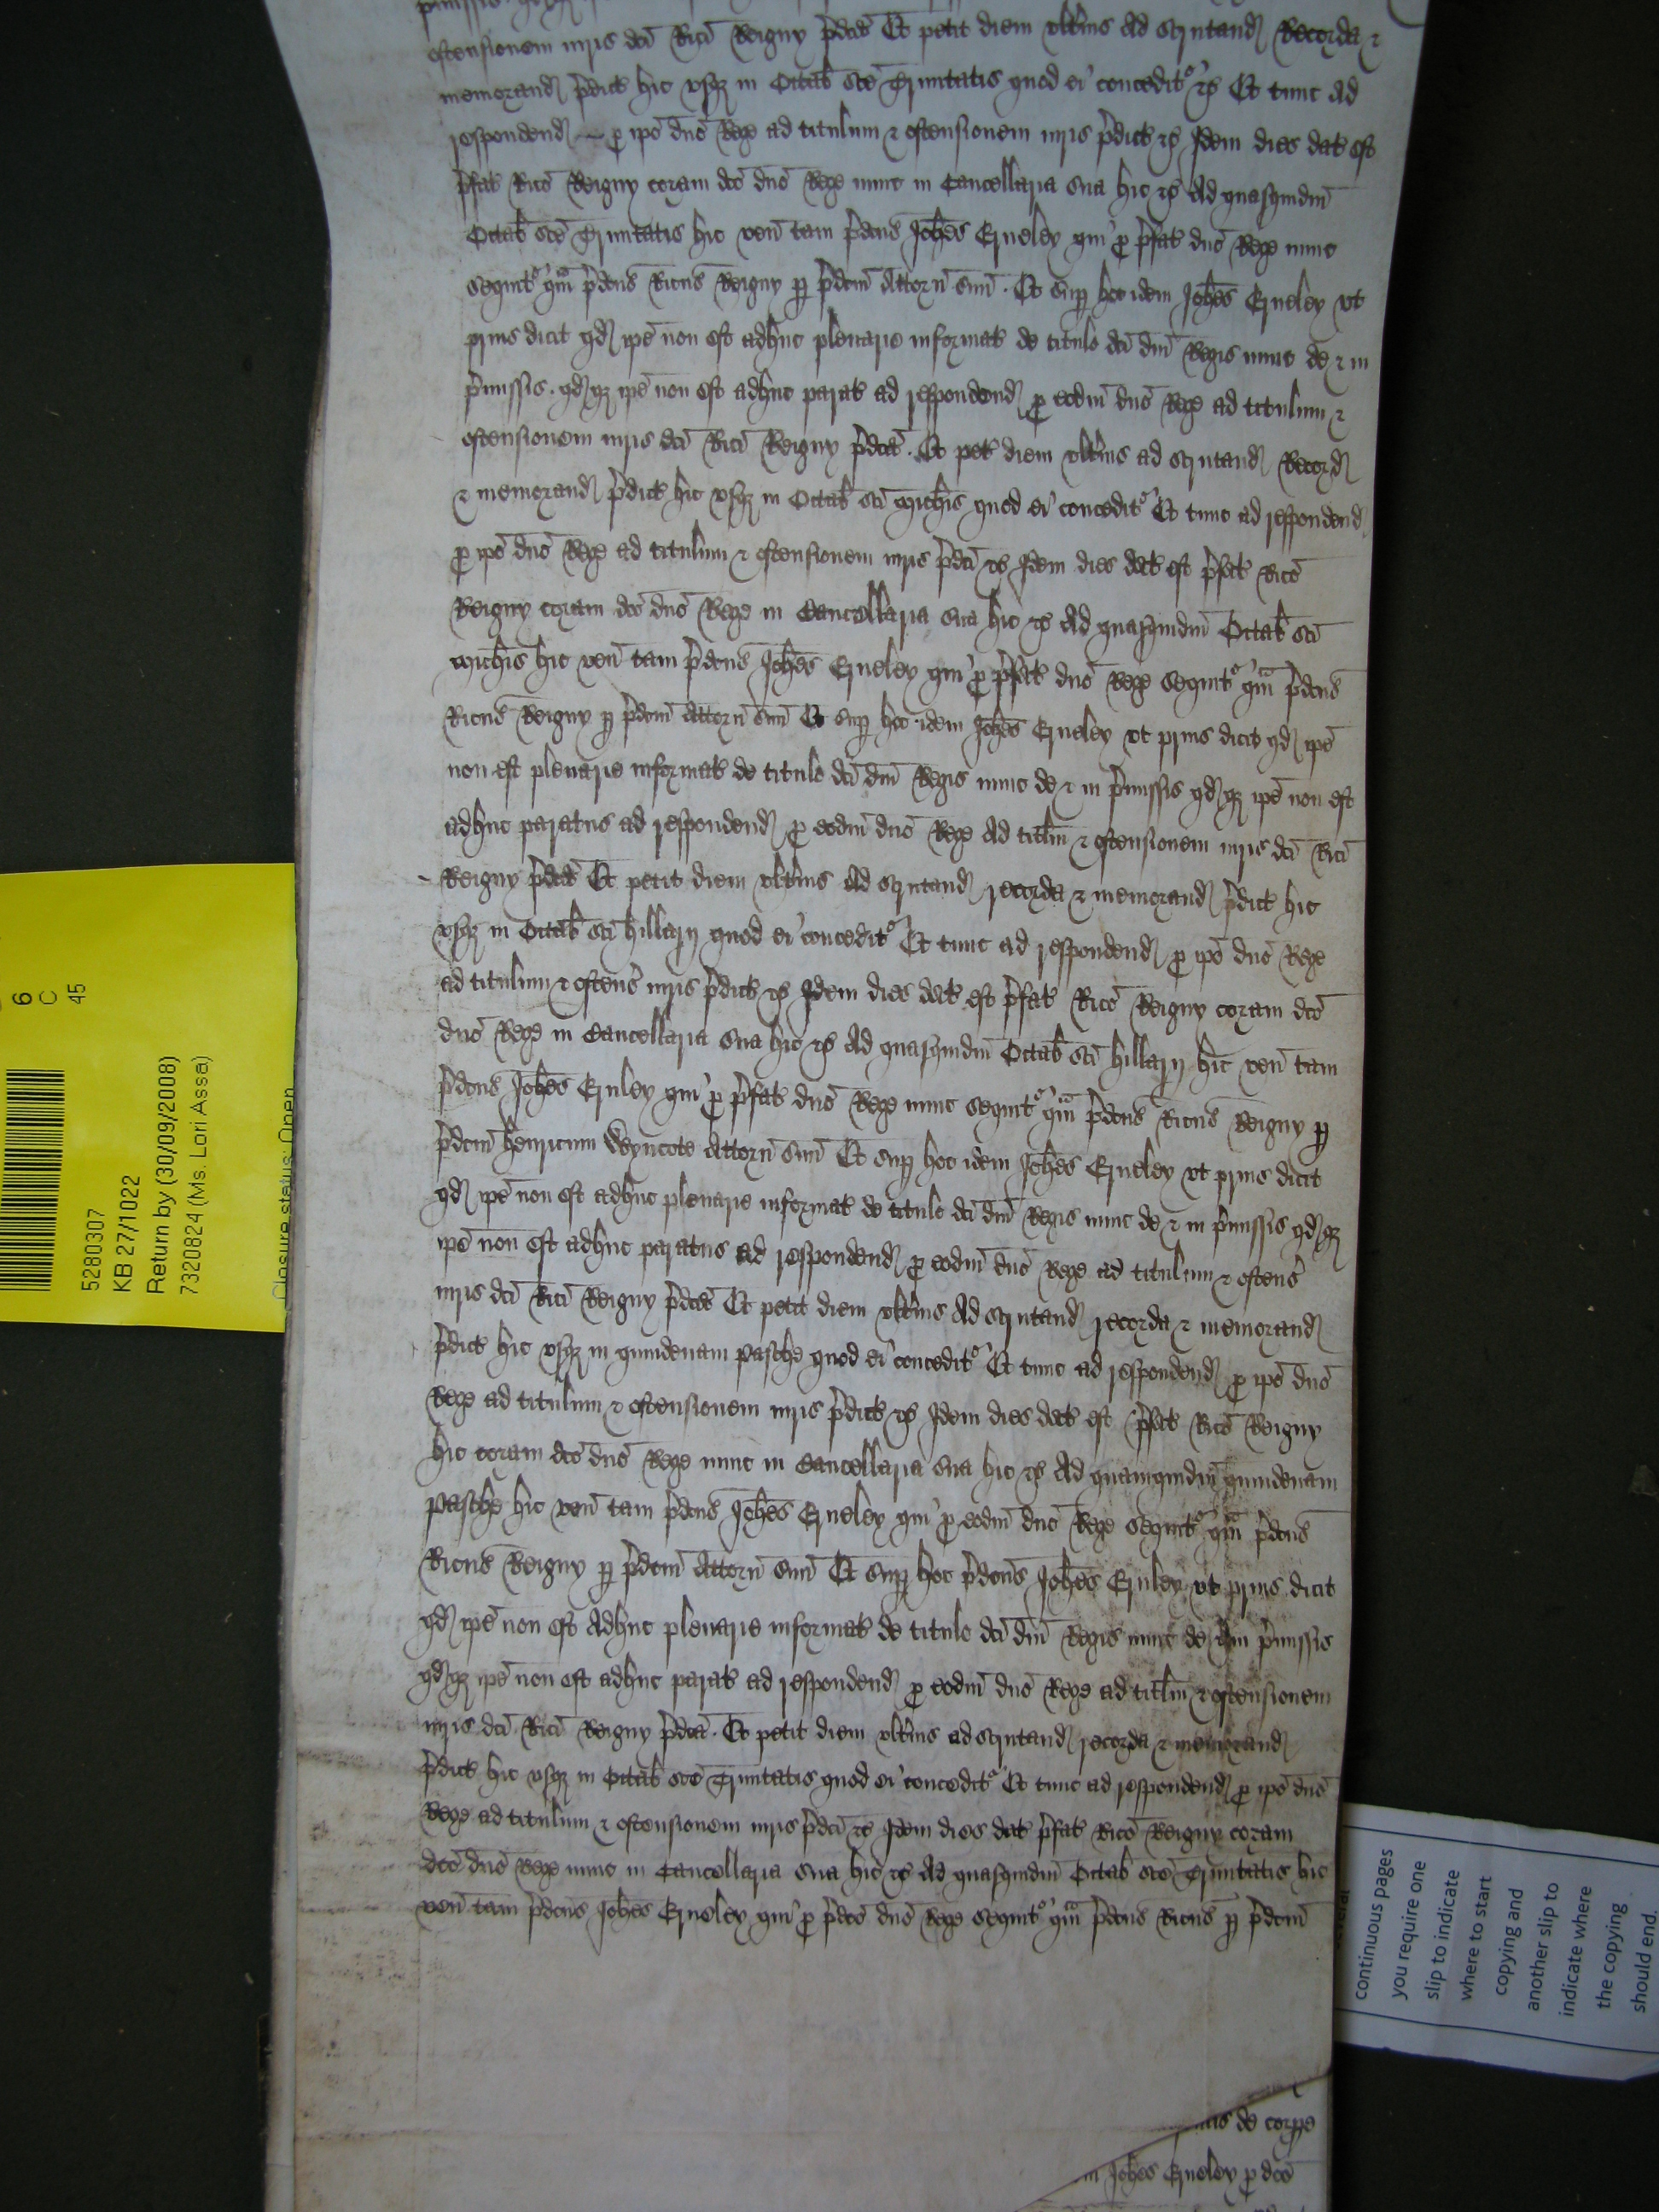 ostensionem iuris dci Rici Reigny p̃dict Et petit diem vltius Ad scrutand Recorda &
memorand p̃dict hic vsqз in Octab̃ sce Trinitatis quod ei concedit̃ &c Et tunc Ad
respondend p ipo dño Rege ad titulum & ostensionem iuris p̃dict &c Idem dies dat est
p̃fat Rico Reigny coram dco dño Rege nunc in Cancellaria sua hic &c Ad quasquidm̃
Octab̃ sce Trinitatis hic veñ tam p̃dcus Joh̃es Erneley qui p p̃fat dño Rege nunc
sequit̃ qm̃ p̃dcus Ricus Reigny p p̃dcm̃ Attorñ suũ . Et sup hoc idem Joh̃es Erneley vt
prius dicit qd ipe non est adhuc plenarie informat de titulo dci dñi Regis nunc de & in
p̃missis . qdqз ipe non est adhuc parat ad respondend p eodm̃ dño Rege ad titulum &
ostensionem iuris dci Rici Reigny p̃dca . Et pet diem vltius ad scrutand Record
& memorand p̃dict hic vsqз in Octab̃ sci Mich̃is quod ei concedit̃ Et tunc ad respondend
p ipo dño Rege ad titulum & ostensionem iuris p̃dci &c Idem dies dat est p̃fat Rico
Reigny coram dco dño Rege in Cancellaria sua hic &c Ad quasquidm̃ Octab̃ sci
Mich̃is hic veñ tam p̃dcus Joh̃es Erneley qui p p̃fat dño Rege sequit̃ qm̃ p̃dcus
Ricus Reigny p p̃dcm̃ Attorñ suũ Et sup hoc idem Joh̃es Erneley vt prius dicit qd ipe
non est plenarie informat de titulo dci dñi Regis nunc de & in p̃missis qdqз ipe non est
adhuc paratus ad respondend p eodm̃ dño Rege Ad titlm̃ & ostensionem iuris dci Rici
Reigny p̃dict Et petit diem vltius Ad scrutand recorda & memorand p̃dict hic
vsqз in Octab̃ sci hillarij quod ei concedit̃ Et tunc ad respondend p ipo dño Rege
ad titulum & ostens̃ iuris p̃dict &c Idem dies dat est p̃fat Rico Reigny coram dco
dño Rege in Cancellaria sua hic &c Ad quasquidm̃ Octab̃ sci hillarij hic veñ tam
p̃dcus Joh̃es Ernley qui p p̃fat dño Rege nunc sequit̃ qm̃ p̃dcus Ricus Reigny p
p̃dcm̃ henricum Wyncote Attorñ suũ Et sup hoc idem Joh̃es Erneley vt prius dicit
qd ipe non est adhuc plenarie informat de titulo dci dñi Regis nunc de & in p̃missis qdqз
ipe non est adhuc paratus ad respondend p eodm̃ dño Rege ad titulum & ostens̃
iuris dci Rici Reigny p̃dict Et petit diem vltius Ad scrutand recorda & memorand
p̃dict hic vsqз in quindenam pasche quod ei concedit̃ Et tunc ad respondend p ipo dño
Rege ad titulum & ostensionem iuris p̃dict &c Idem dies dat est p̃fat Rico Reigny
hic coram dco dño Rege nunc in Cancellaria sua hic &c Ad quamquidm̃ quindenam
pasche hic veñ tam p̃dcus Joh̃es Erneley qui p eodm̃ dño Rege sequit̃ qm̃ p̃dcus
Ricus Reigny p p̃dcm̃ Attorñ suũ Et sup hoc p̃dcus Joh̃es Ernley vt prius dicit
qd ipe non est Adhuc plenarie informat de titulo dci dñi Regis nunc de & in p̃missis
qdqз ipe non est adhuc parat ad respondend p eodm̃ dño Rege ad titlm̃ & ostensionem
iuris dci Rici Reigny p̃dca . Et petit diem vltius ad scrutand recorda & memorand
p̃dict hic vsqз in Octab̃ sce Trinitatis quod ei concedit̃ Et tunc ad respondend p ipo dño
Rege ad titulum & ostensionem iuris p̃dci &c Idem dies dat p̃fat Rico Reigny coram
dco dño Rege nunc in Cancellaria sua hic &c Ad quasquidm̃ Octab̃ sce Trinitatis hic
veñ tam p̃dcus Joh̃es Erneley qui p p̃dco dño Rege sequit̃ qm̃ p̃dcus Ricus p p̃dcm̃
de corpe
Joh̃es Erneley p dco
6
C
45
5280307
KB 27/1022
Return by (30/09/2008)
7320824 (Ms. Lori Assa)
Closure status: Open
continuous pages
you require one
slip to indicate
where to start
copying and
another slip to
indicate where
the copying
should end.